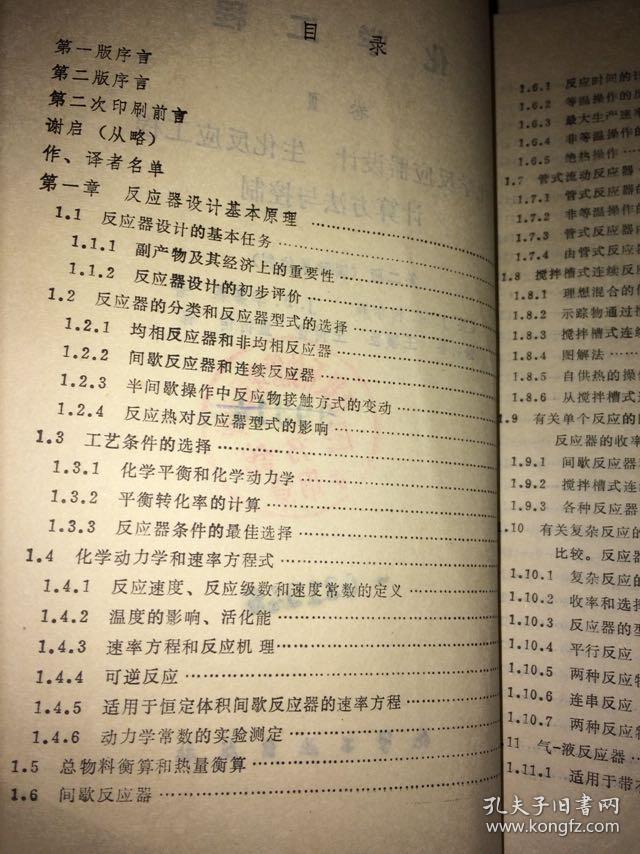 目 录
第一版序言
第二版序言
第二次印刷前言
谢启（从略）
作、译者名单
第一章 反应器设计基本原理
1.1 反应器设计的基本任务
1.1.1 副产物及其经济上的重要性
1.1.2 反应器设计的初步评价
1.2 反应器的分类和反应器型式的选择
1.2.1 均相反应器和非均相反应器
1.2.2 间歇反应器和连续反应器
1.2.3 半间歇操作中反应物接触方式的变动
1.2.4 反应热对反应器型式的影响
1.3 工艺条件的选择
1.3.1 化学平衡和化学动力学
1.3.2 平衡转化率的计算
1.3.3 反应器条件的最佳选择
1.4 化学动力学和速率方程式
1.4.1 反应速度、反应级数和速度常数的定义
1.4.2 温度的影响、活化能
1.4.3 速率方程和反应机理
1.4.4 可逆反应
1.4.5 适用于恒定体积间歇反应器的速率方程
1.4.6 动力学常数的实验测定
1.5 总物料衡算和热量衡算
1.6 间歇反应器
1.6.1 反应时间的计
1.6.2 等温操作的
1.6.3 最大生产速率
1.6.4 非等温操作的
1.6.5 绝热操作
1.7 管式流动反应器
1.7.1 管式反应器
1.7.2 非等温操作的
1.7.3 管式反应器
1.7.4 由管式反应
1.8 搅拌槽式连续反
1.8.1 理想混合的
1.8.2 示踪物通过
1.8.3 搅拌槽式连
1.8.4 图解法
1.8.5 自供热的操
1.8.6 从搅拌槽式
1.9 有关单个反应的
反应器的收率
1.9.1 间歇反应器
1.9.2 搅拌槽式连
1.9.3 各种反应器
1.10 有关复杂反应的
比较。反应器
1.10.1 复杂反应的
1.10.2 收率和选择
1.10.3 反应器的型
1.10.4 平行反应
1.10.5 两种反应物
1.10.6 连串反应
1.10.7 两种反应
11 气-液反应器
1.11.1 适用于带
孔夫子旧书网
www.kongfz.com